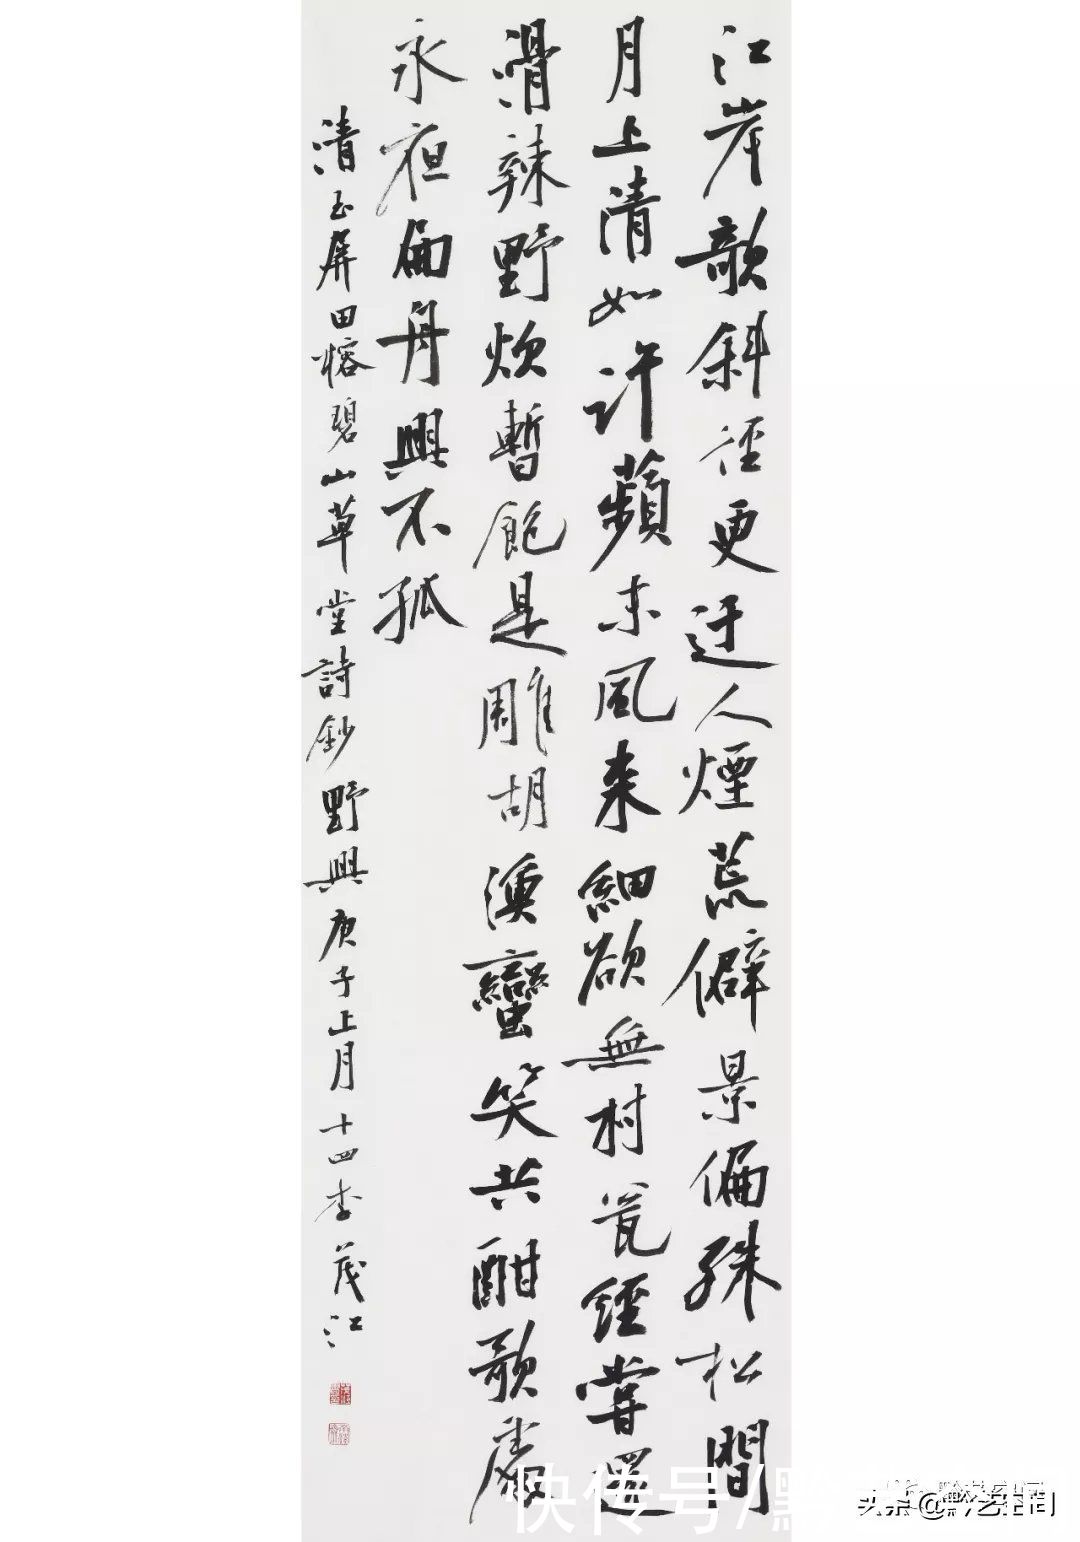 江岸欹斜徑更迂人煙荒僻景偏殊松間
月上清如許蘋末風來細欲無村瓮經嘗還
滑辣野炊暫飽是雕胡漁蠻笑共酣歌處
永夜扁舟興不孤
清玉屏田榕碧山草堂詩鈔野興庚子上月十四李茂江
快传号/黔
头条 @黔艺空间